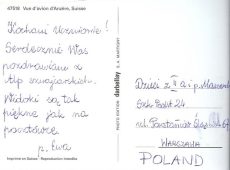 47518 Vue d'avion d'Anzère, Suisse
Kochani Uczniowie!
Serdecznie Was
pozdrawiam z
Alp szwajcarskich.
Widoki są tak
piękne jak na
pocztówce.
p. Ewa
Imprimé en Suisse - Reproduction interdite
PHOTO EDITION darbellay
Dzieci z II a i p.
Szk. Podst 24
ul. Powstańców
WARSZAWA
POLAND